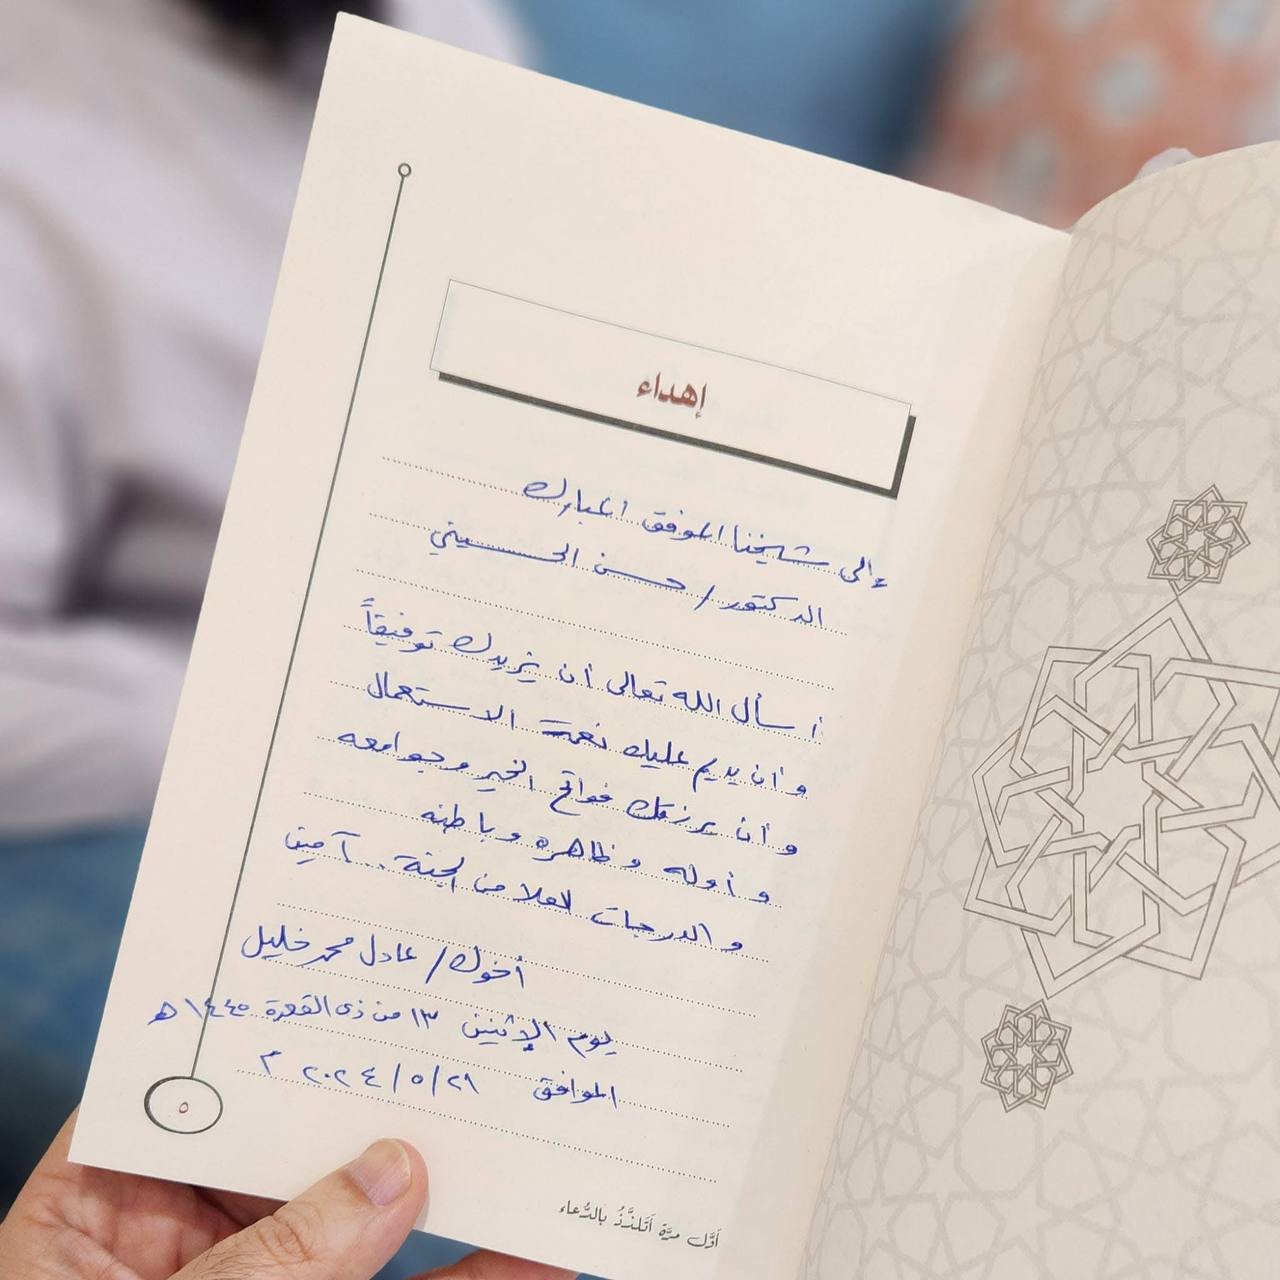 إهداء
إلى شيخنا الموفق المبارك
الدكتور / حسن الحسيني
أسأل الله تعالى أن يزيدك توفيقاً
وأن يديم عليك نعمة الاستعمال
وأن يرزقك فواتح الخير وجوامعه
وأوله وظاهره وباطنه
والدرجات العلا من الجنة .. آمين
أخوك / عادل محمد خليل
يوم الإثنين ١٣ من ذي القعدة ١٤٤٥ هـ
الموافق ٢١ / ٥ / ٢٠٢٤ م
٥
أَوَّل مرَّة أَتَلذَّذُ بالدُّعاء